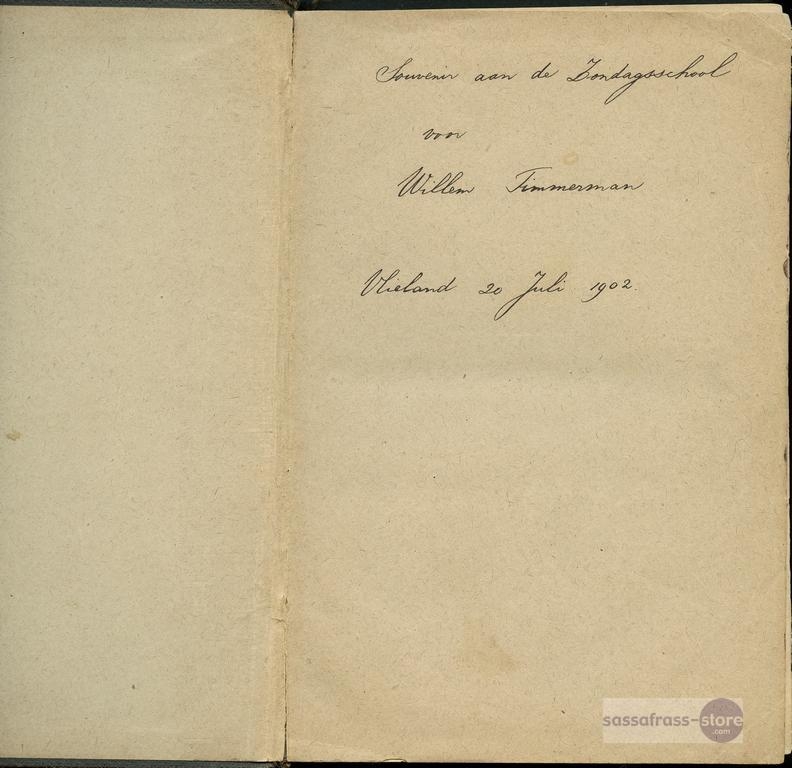 Souvenir aan de Zondagsschool
voor
Willem Timmerman
Vlieland 20 Juli 1902.
sassafrass-store
.com